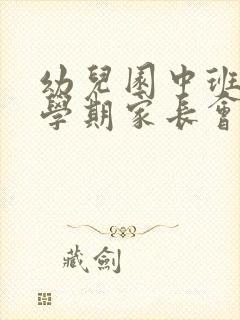 幼兒園中班
學期家長會
藏劍